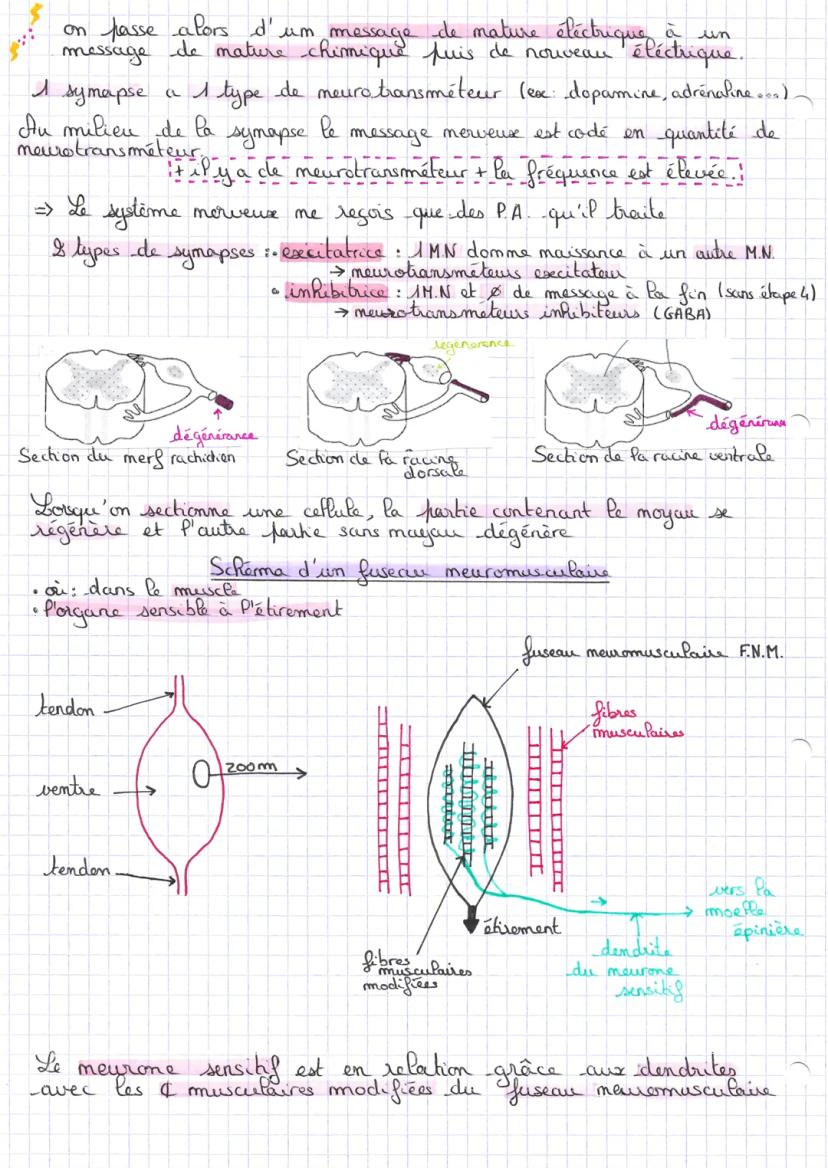 on passe alors d'un message de nature éléctrique à un
message de nature chimique puis de nouveau éléctrique.
1 synapse a 1 type de neurotransméteur (ex: dopamine, adrénaline...)
Au milieu de la synapse le message nerveux est codé en quantité de
neurotransméteur.
+ il y a de neurotransméteur + la fréquence est élevée.
=> Le système nerveux ne reçois que des P.A. qu'il traite
2 types de synapses : • exécitatrice : 1 M.N donne naissance à un autre M.N.
→ neurotransméteurs excitateur
• inhibitrice : 1M.N et ø de message à la fin (sans étape 4)
→ neurotransméteurs inhibiteurs (GABA)
régénérence
dégénérance
dégénérance
Section du nerf rachidien
Section de la racine
dorsale
Section de la racine ventrale
Lorsqu'on sectionne une cellule, la partie contenant le noyau se
régénère et l'autre partie sans noyau dégénère
Schéma d'un fuseau neuromusculaire
• où : dans le muscle
• l'organe sensible à l'étirement
fuseau neuromusculaire F.N.M.
tendon
fibres
musculaires
zoom
ventre
tendon
vers la
moelle
épinière
étirement
dendrite
du neurone
sensitif
fibres
musculaires
modifiées
Le neurone sensitif est en relation grâce aux dendrites
avec les ₵ musculaires modifiées du fuseau neuromusculaire